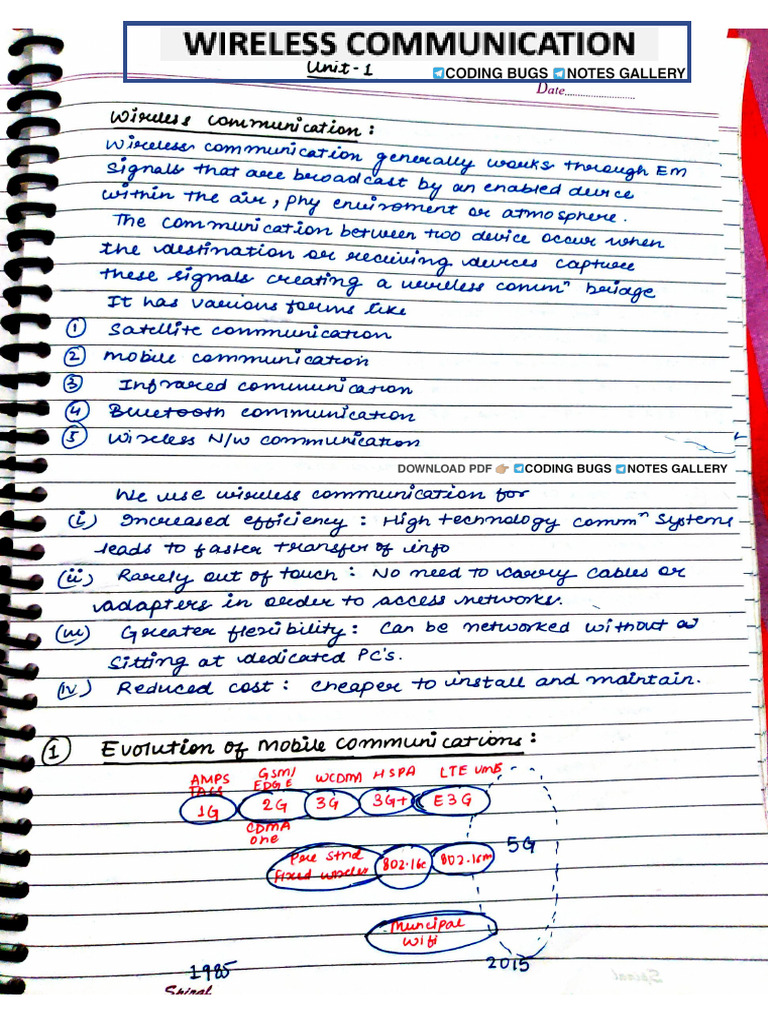 WIRELESS COMMUNICATION
Unit-1
CODING BUGS NOTES GALLERY
Date
Wireless Communication:
Wireless communication generally works through Em
signals that are broadcast by an enabled device
within the air, phy enviroment or atmosphere.
The communication between two device occur when
the destination or receiving devices capture
these signals creating a wireless commⁿ bridge
It has various forms like
① Satellite communication
② Mobile communication
③ Infrared communication
④ Bluetooth communication
⑤ Wireless N/w communication
DOWNLOAD PDF 👉🏼 CODING BUGS NOTES GALLERY
We use wireless communication for
(i) Increased efficiency : High technology commⁿ systems
leads to faster transfer of info
(ii) Rarely out of touch : No need to carry cables or
adapters in order to access networks.
(iii) Greater flexibility : Can be networked without
sitting at dedicated PC's.
(iv) Reduced cost : cheaper to install and maintain.
① Evolution of Mobile Communications :
AMPS GSM/ WCDMA HSPA LTE UMB
TACS EDGE
1G 2G 3G 3G+ E3G
CDMA
one
5G
Pre stnd 802.16e 802.16m
fixed wireless
Muncipal
Wifi
1985 2015
Spiral